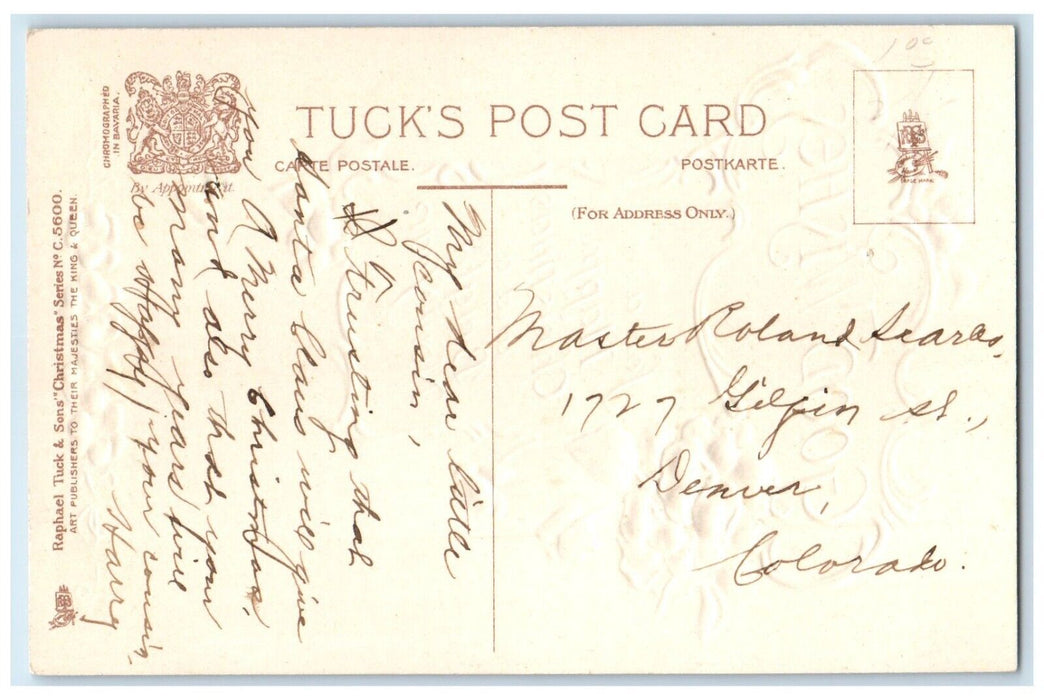 CHROMOGRAPHED
IN BAVARIA.
By Appointment.
TUCK'S POST CARD
CARTE POSTALE.
POSTKARTE.
(FOR ADDRESS ONLY.)
TRADE MARK
100
Raphael Tuck & Sons' "Christmas" Series Nº C. 5600.
ART PUBLISHERS TO THEIR MAJESTIES THE KING & QUEEN.
My dear little
cousin,
Trusting that
Santa Claus will give
you
A Merry Christmas,
and also that your
many years will
be Happy, your cousin,
Harry
Master Roland Searles,
1727 Gilpin St.,
Denver,
Colorado.